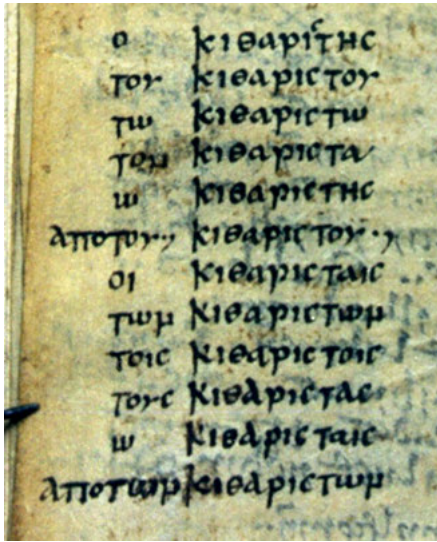 ο κιθαριϲτηϲ
του κιθαριϲτου
τω κιθαριϲτω
τον κιθαριϲτα
ω κιθαριϲτηϲ
απο του·, κιθαριϲτου·,
οι κιθαριϲταιϲ
των κιθαριϲτων
τοιϲ κιθαριϲτοιϲ
τουϲ κιθαριϲταϲ
ω κιθαριϲταιϲ
απο των κιθαριϲτων